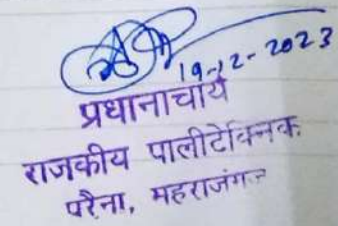 19-12-2023
प्रधानाचार्य
राजकीय पालीटेक्निक
परैना, महराजगंज